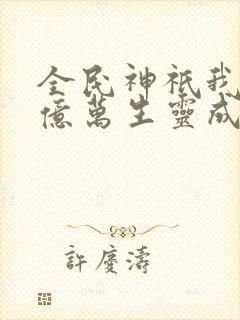 全民神祇我
億萬生靈成
許慶濤